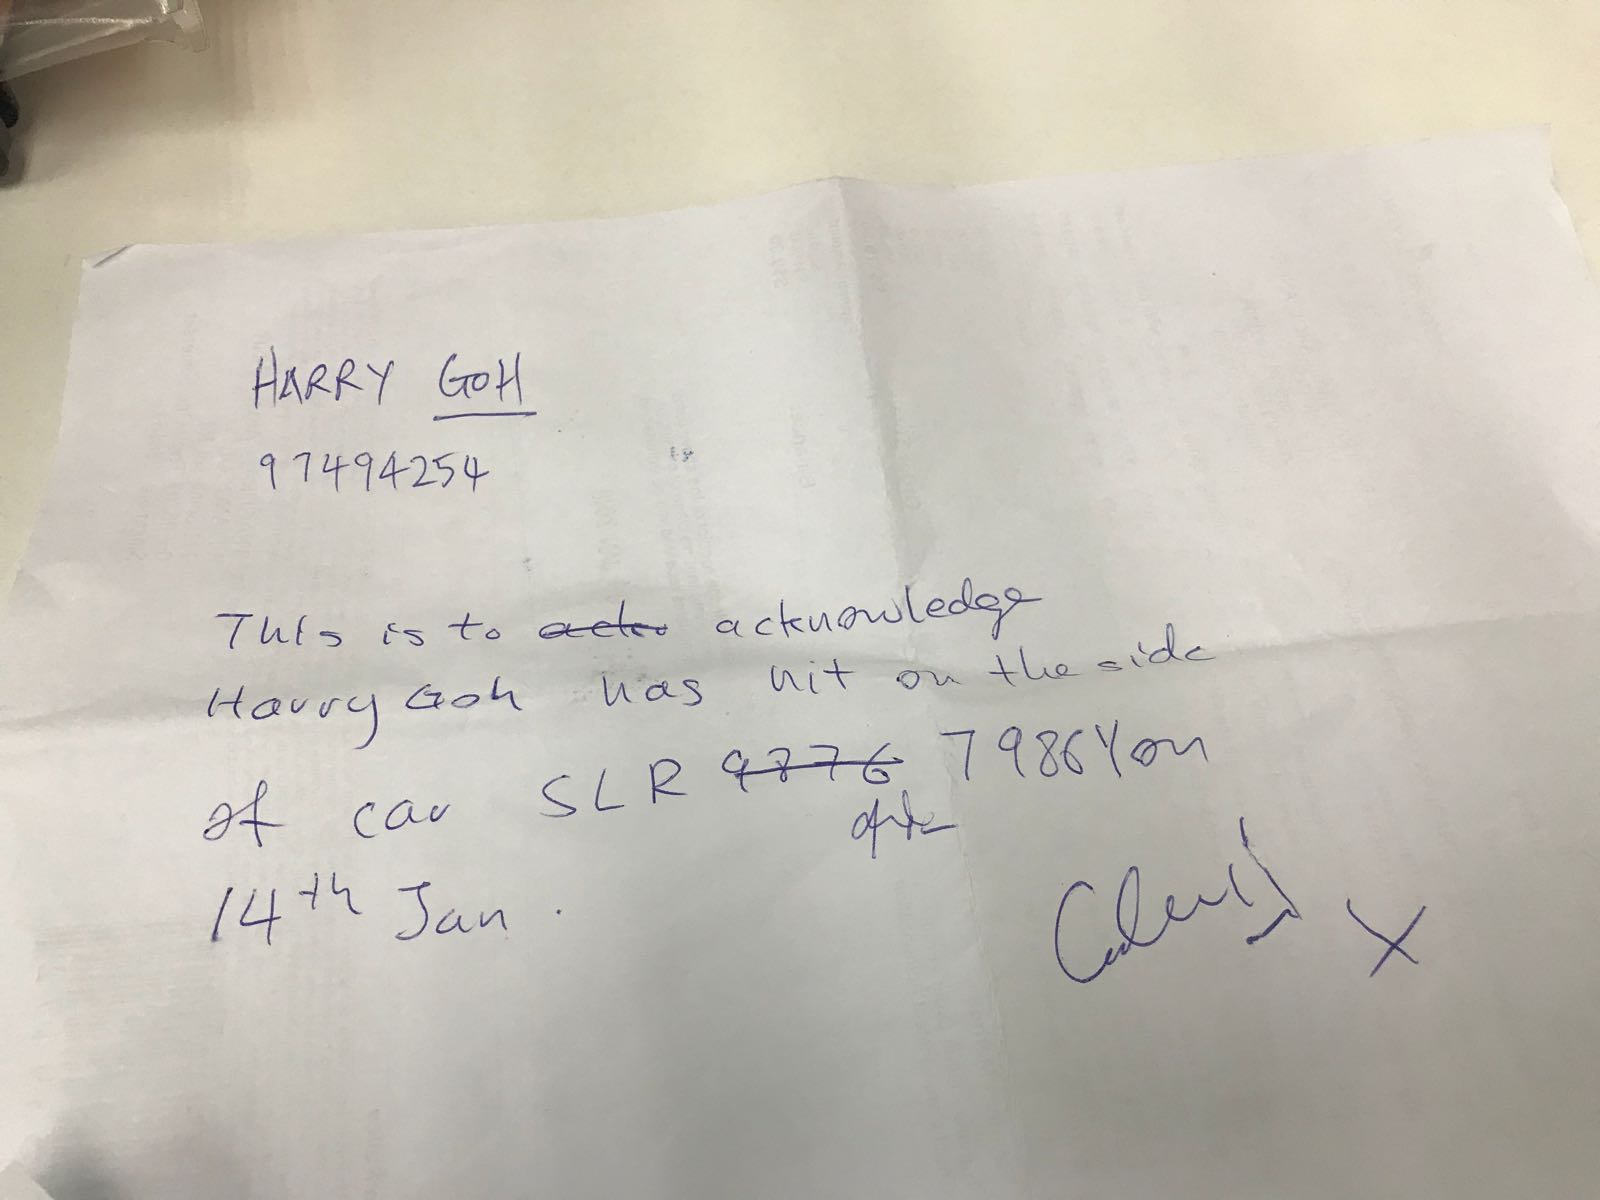 HARRY GOH
97494254
This is to acknowledge
Harry Goh has hit on the side
of car SLR 9776 7986Y on
14th Jan.
X